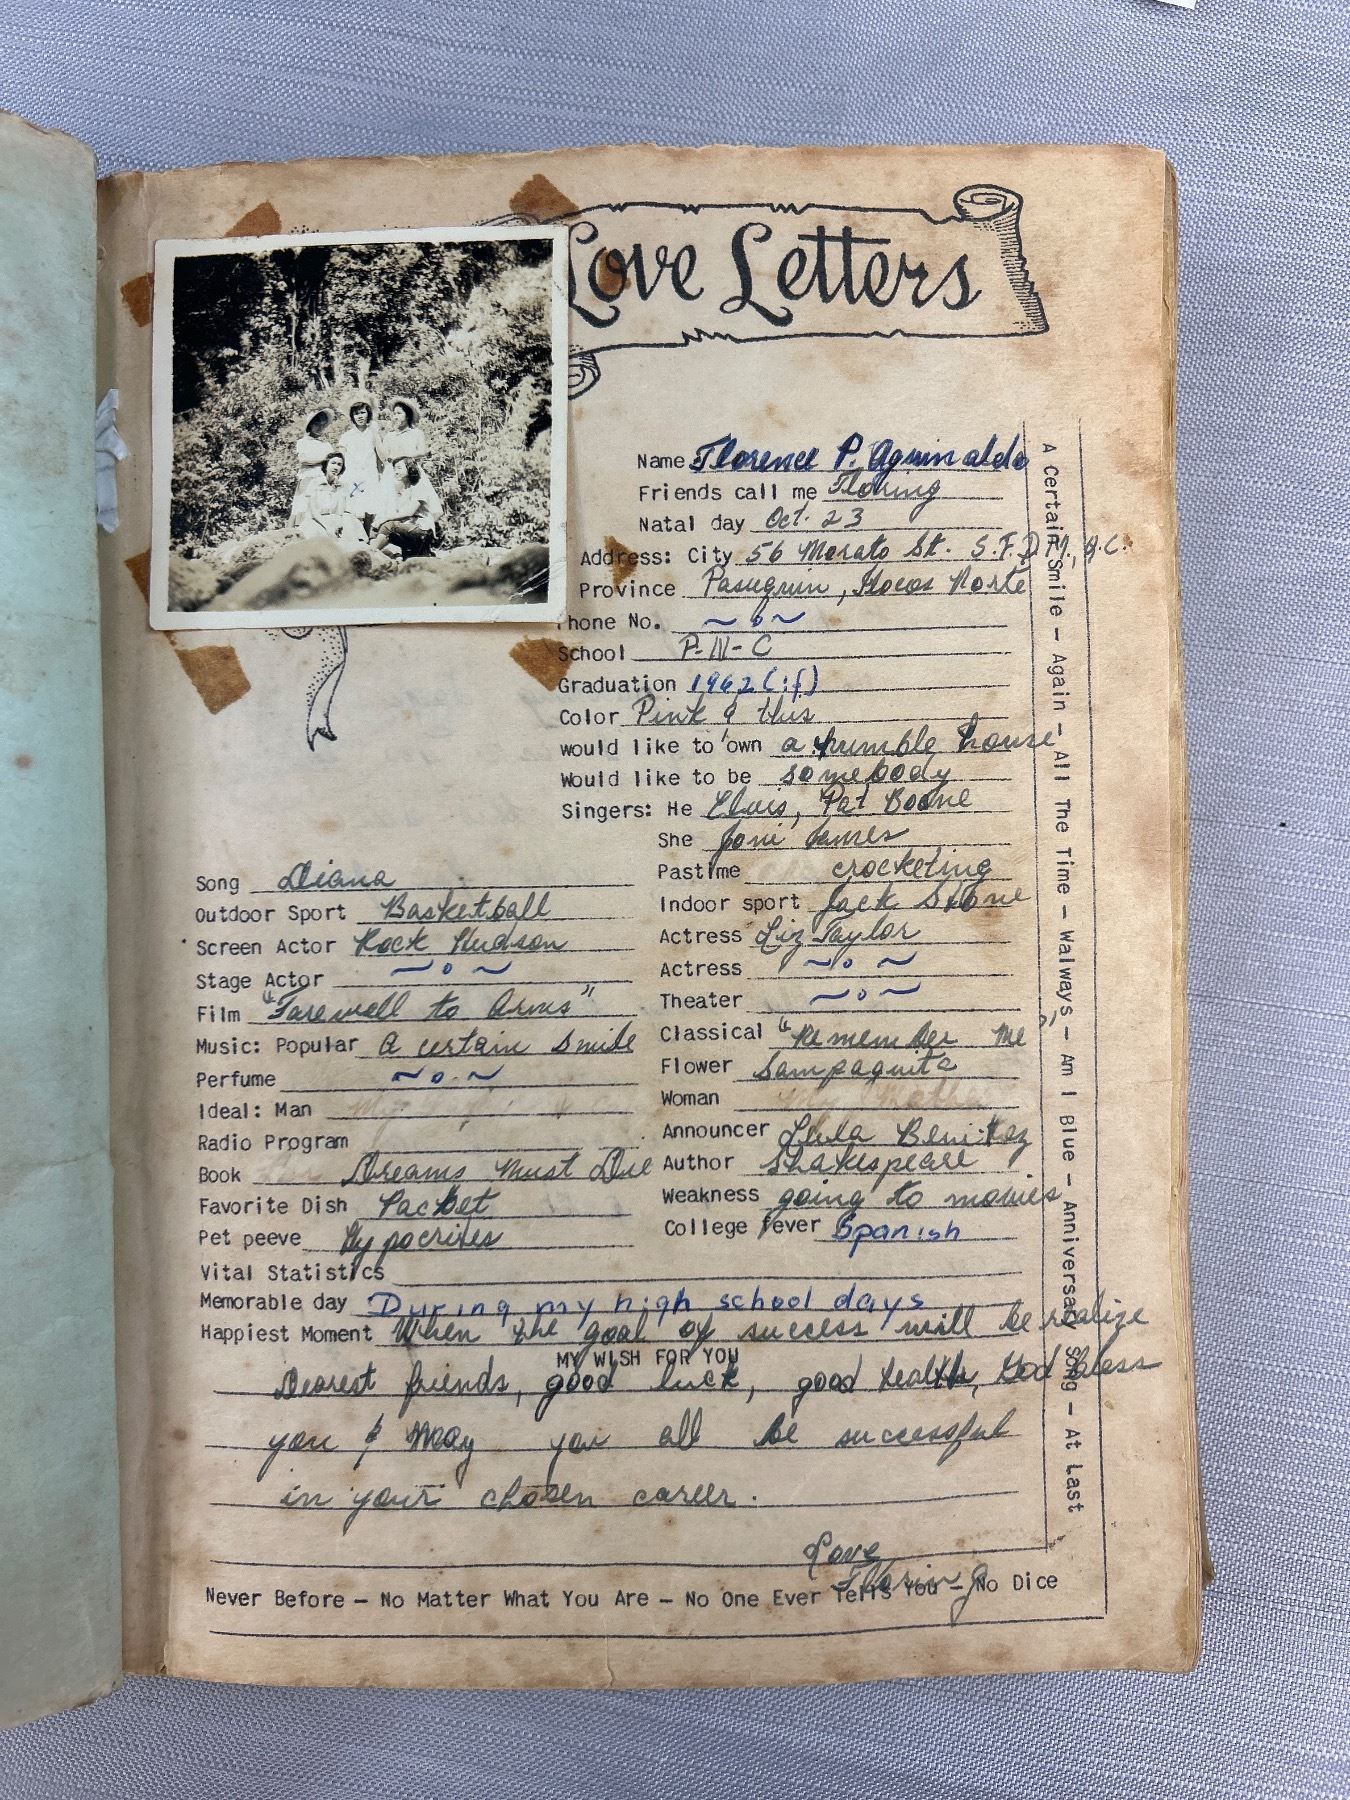 Love Letters
Name Florence P. Aguinaldo
Friends call me Floring
Natal day Oct. 23
Address: City 56 Morato St. S.F.D.M, Q.C.
Province Pasuquin, Ilocos Norte
Phone No. ~ o ~
School P-N-C
Graduation 1962 (:f)
Color Pink &
would like to own a humble house
Would like to be somebody
Singers: He Elvis, Pat Boone
She Joni James
Song Diana
Pastime crocketing
Outdoor Sport Basketball
Indoor sport Jack Stone
Screen Actor Rock Hudson
Actress Liz Taylor
Stage Actor ~ o ~
Actress ~ o ~
Film "Farewell to Arms"
Theater ~ o ~
Music: Popular A certain Smile
Classical "Remember Me"
Perfume ~ o ~
Flower Sampaguita
Ideal: Man
Woman My Mother
Radio Program
Announcer Benitez
Book Dreams Must Die
Author Shakespeare
Favorite Dish Pacbet
Weakness going to movies
Pet peeve Hypocrites
College fever Spanish
Vital Statistics
Memorable day During my high school days
Happiest Moment When the goal of success will be realize
MY WISH FOR YOU
Dearest friends, good luck, good health, God bless
you & May you all be successful
in your chosen career.
Love
Floring
Never Before - No Matter What You Are - No One Ever Tells You - No Dice
A Certain Smile - Again - All The Time - Walways - Am I Blue - Anniversary Song - At Last